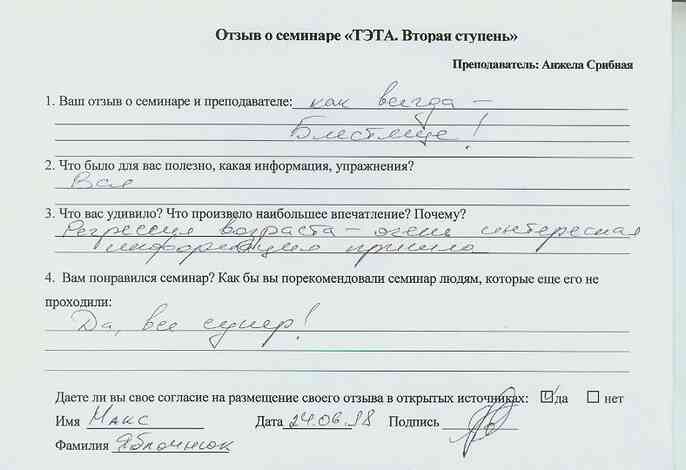 Отзыв о семинаре «ТЭТА. Вторая ступень»
Преподаватель: Анжела Срибная
1. Ваш отзыв о семинаре и преподавателе: как всегда –
Блестяще!
2. Что было для вас полезно, какая информация, упражнения?
Вся
3. Что вас удивило? Что произвело наибольшее впечатление? Почему?
Регрессия возраста – очень интересная
информация пришла
4. Вам понравился семинар? Как бы вы порекомендовали семинар людям, которые еще его не
проходили:
Да, все супер!
Даете ли вы свое согласие на размещение своего отзыва в открытых источниках: да нет
Имя Макс Дата 24.06.18 Подпись
Фамилия Яблочнюк